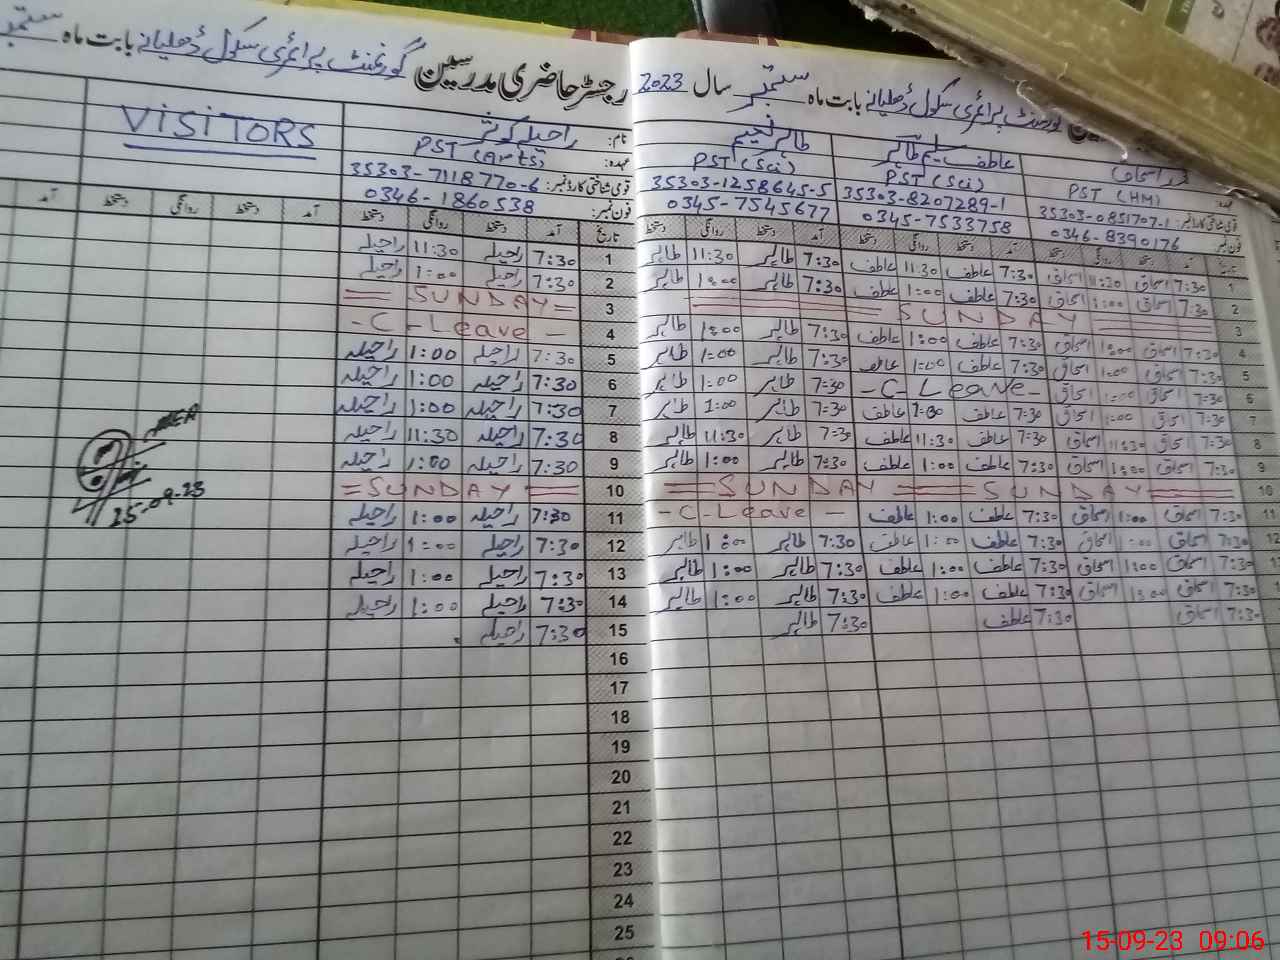 رجسٹر حاضری مدرسین گورنمنٹ پرائمری سکول ڈھلیانے بابت ماہ ستمبر
گورنمنٹ پرائمری سکول ڈھلیانے بابت ماہ ستمبر سال 2023
نام: راحیلہ کوثر
طاہر نعیم
عاطف سلیم طاہر
اسحاق
VISITORS
عہدہ: PST (Arts)
PST (Sci)
PST (Sci)
PST (HM)
قومی شناختی کارڈ نمبر: 35303-7118770-6
35303-1258645-5
35303-8207289-1
35303-0851707-1
فون نمبر: 0346-1860538
0345-7545677
0345-7533758
0346-8390176
تاریخ آمد دستخط روانگی دستخط آمد دستخط روانگی دستخط آمد
آمد دستخط روانگی دستخط آمد دستخط روانگی دستخط آمد دستخط روانگی دستخط
1 7:30 راحیلہ 11:30 راحیلہ
7:30 طاہر 11:30 طاہر 7:30 عاطف 11:30 عاطف 7:30 اسحاق 11:30 اسحاق 1
2 7:30 راحیلہ 1:00 راحیلہ
7:30 طاہر 1:00 طاہر 7:30 عاطف 1:00 عاطف 7:30 اسحاق 1:00 اسحاق 2
3 = SUNDAY =
SUNDAY 3
4 - C - Leave -
7:30 طاہر 1:00 طاہر 7:30 عاطف 1:00 عاطف 7:30 اسحاق 1:00 اسحاق 4
5 7:30 راحیلہ 1:00 راحیلہ
7:30 طاہر 1:00 طاہر 7:30 عاطف 1:00 عاطف 7:30 اسحاق 1:00 اسحاق 5
6 7:30 راحیلہ 1:00 راحیلہ
7:30 طاہر 1:00 طاہر - C - Leave - 7:30 اسحاق 1:00 اسحاق 6
7 7:30 راحیلہ 1:00 راحیلہ
7:30 طاہر 1:00 طاہر 7:30 عاطف 1:00 عاطف 7:30 اسحاق 1:00 اسحاق 7
8 7:30 راحیلہ 11:30 راحیلہ
7:30 طاہر 11:30 طاہر 7:30 عاطف 11:30 عاطف 7:30 اسحاق 11:30 اسحاق 8
9 7:30 راحیلہ 1:00 راحیلہ
7:30 طاہر 1:00 طاہر 7:30 عاطف 1:00 عاطف 7:30 اسحاق 1:00 اسحاق 9
10 = SUNDAY =
= SUNDAY = SUNDAY = 10
11 7:30 راحیلہ 1:00 راحیلہ
- C - Leave - 7:30 عاطف 1:00 عاطف 7:30 اسحاق 1:00 اسحاق 11
12 7:30 راحیلہ 1:00 راحیلہ
7:30 طاہر 1:00 طاہر 7:30 عاطف 1:00 عاطف 7:30 اسحاق 1:00 اسحاق 12
13 7:30 راحیلہ 1:00 راحیلہ
7:30 طاہر 1:00 طاہر 7:30 عاطف 1:00 عاطف 7:30 اسحاق 1:00 اسحاق
14 7:30 راحیلہ 1:00 راحیلہ
7:30 طاہر 1:00 طاہر 7:30 عاطف 1:00 عاطف 7:30 اسحاق 1:00 اسحاق
15 7:30 راحیلہ
7:30 طاہر 7:30 عاطف 7:30 اسحاق
16
17
18
19
20
21
22
23
24
25
25-09-23
15-09-23 09:06